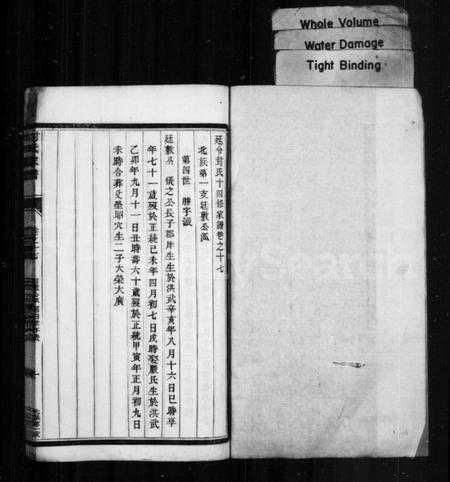 Whole Volume
Water Damage
Tight Binding
延令封氏十四修家譜卷之十七
北族第一支廷敷公派
第四世 勝字派
廷敷公 儀之公長子郡庠生生於洪武辛亥年八月十六日巳時卒
年七十一歲歿於正統己未年四月初七日戌時娶嚴氏生於洪武
乙卯年九月十一日丑時壽六十歲歿於正統甲寅年正月初九日
未時合葬父塋昭穴生二子大榮大廣
封氏家譜
卷之十七
一